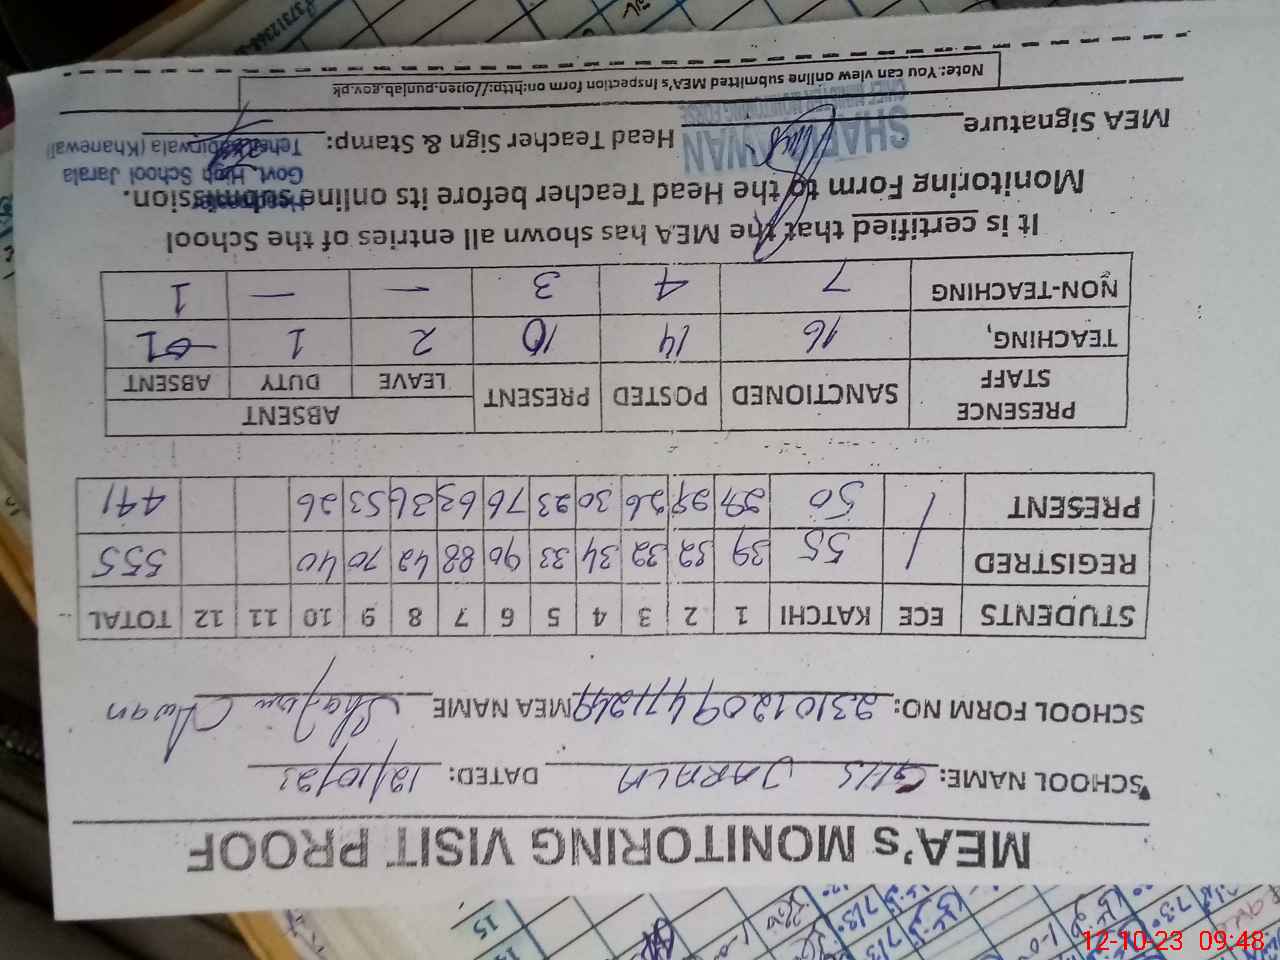 MEA's MONITORING VISIT PROOF
SCHOOL NAME: GHS JARALA DATED: 12/10/23
SCHOOL FORM NO: MEA NAME Awan
STUDENTS ECE KATCHI 1 2 3 4 5 6 7 8 9 10 11 12 TOTAL
REGISTRED / 55 39 32 32 34 33 90 88 42 70 40 555
PRESENT / 50 29 28 26 30 23 76 63 36 53 26 441
PRESENCE STAFF SANCTIONED POSTED PRESENT ABSENT
LEAVE DUTY ABSENT
TEACHING, 16 14 10 2 1 01
NON-TEACHING 7 4 3 — — 1
It is certified that the MEA has shown all entries of the School
Monitoring Form to the Head Teacher before its online submission.
Govt. High School Jarala
MEA Signature Head Teacher Sign & Stamp:
(Khanewal)
CHIEF MINISTER MONITORING FORCE
Note: You can view online submitted MEA's Inspection form on:http://open.punjab.gov.pk
15
12-10-23 09:48